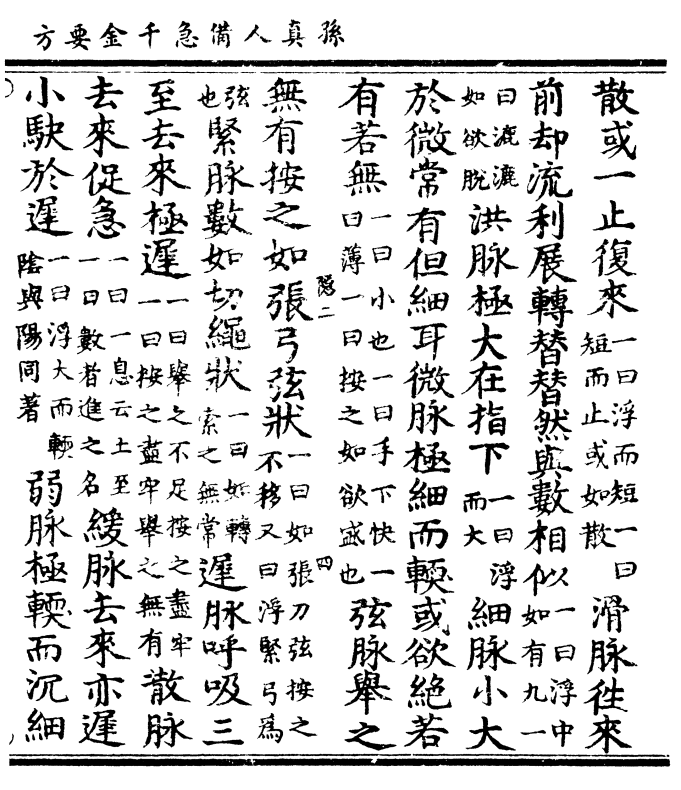 孫真人備急千金要方
散或一止復來一曰浮而短一曰短而止或如散滑脉往來
前却流利展轉替替然與數相似一曰浮中如有九一
曰漉漉如欲脫洪脉極大在指下一曰浮而大細脉小大
於微常有但細耳微脉極細而輭或欲絶若
有若無一曰小也一曰手下快一曰薄一曰按之如欲盛也弦脉舉之
隱二
四
無有按之如張弓弦狀一曰如張刀弦按之不移又曰浮緊弓爲
弦也緊脉數如切繩狀一曰如轉索之無常遲脉呼吸三
至去來極遲一曰舉之不足按之盡牢一曰按之盡牢舉之無有脉
去來促急一曰一息云土至一曰數者進之名緩脉去來亦遲
小駃於遲一曰浮大而輭陰與陽同著弱脉極輭而沉細